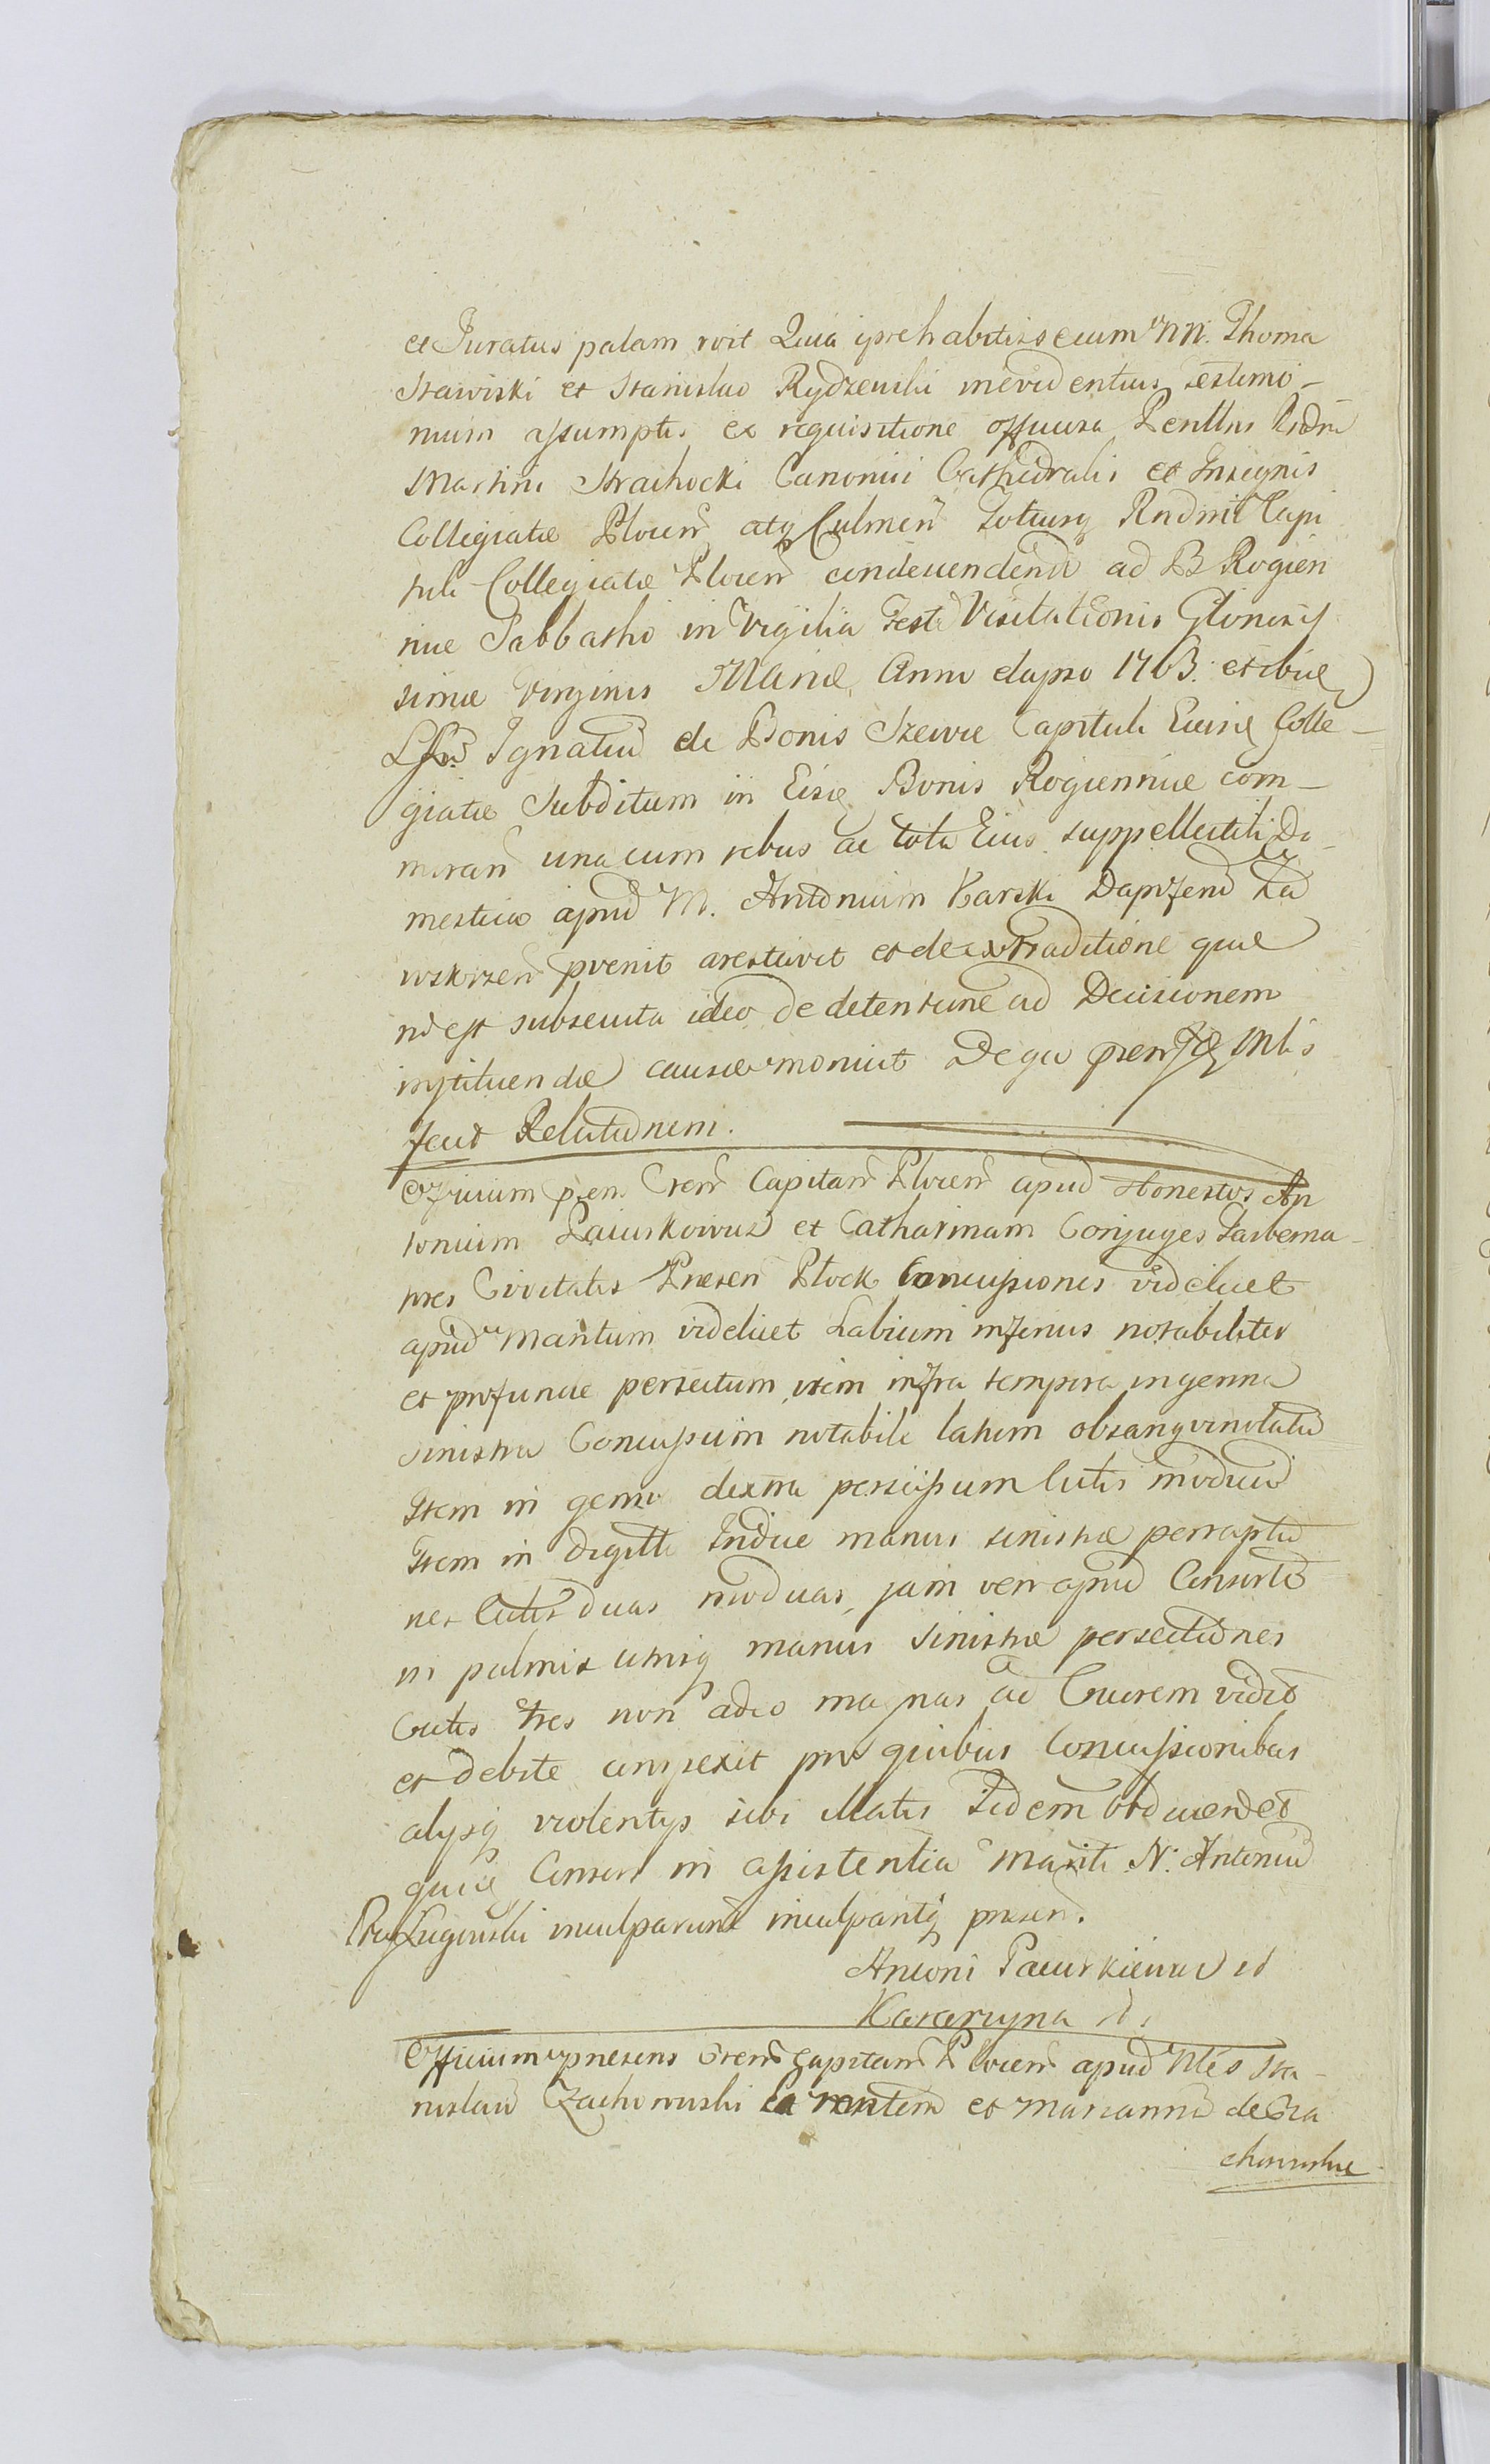 et Juratus palam roit Quia ipse habitis secum NN. Thoma
Stawiski et Stanislao Rydzewski in evidentius testimo-
nium assumptis ex requisitione officiosa Perillris Rndmi
Martini Strachocki Canonici Cathedralis et Insignis
Collegiatæ Plocen atq Culmen Totiusq Rndmi Capi
tuli Collegiatæ Plocen condescendendo ad B Rogien
nice Sabbatho in Vigilia Festi Visitationis Glorisis
simæ Virginis Mariæ Anno elapso 1763. et ibie
Ignatiu de Bonis Szewce Capituli Eiusq Colle-
giatæ Subditum in Eisq Bonis Rogiennice com-
moran una cum rebus ac tota Eius suppellectili Do-
mestica apud M. Antonium Karski Dapiferu Za
wskrzen pvenit arestavit et de extraditione quæ
no est subsecuta ideo de detentione ad Decisionem
instituendæ causæ monuit De qo
fecit Relationem.
Officium psens Cren Capitan Plocen apud Honestos An
tonium Paciurkowicz et Catharinam Conjuges Taberna-
tores Civitatis Præsen Plock Concussiones videlicet
apud Maritum videlicet Labium inferius notabiliter
et profunde persectum, item infra tempora in genna
sinistra Concussum notabile latum obsangvinolatu
Item in genna dextra perscissum Cutis modicu
Item in digitto Indice manus sinistræ perraptio
nes Cutis duas modicas, jam vero apud Consorte
in palmis utriusq manus sinistræ persectiones
Cutis tres non adeo magnas ac Cruorem vidit
et debite conspexit pro quibus Concussionibus
alysq violentys sibi illatis Fidem
quiq Consors in assistentia Mariti N. Antoniu
inculparunt inculpantq præsen.
Antoni Paciurkiewicz
Katarzyna
Officium præsens Cren Capitan Plocen apud Nles Sta-
nislau Czachowski Parentem et Mariannu de Cza
chowskie